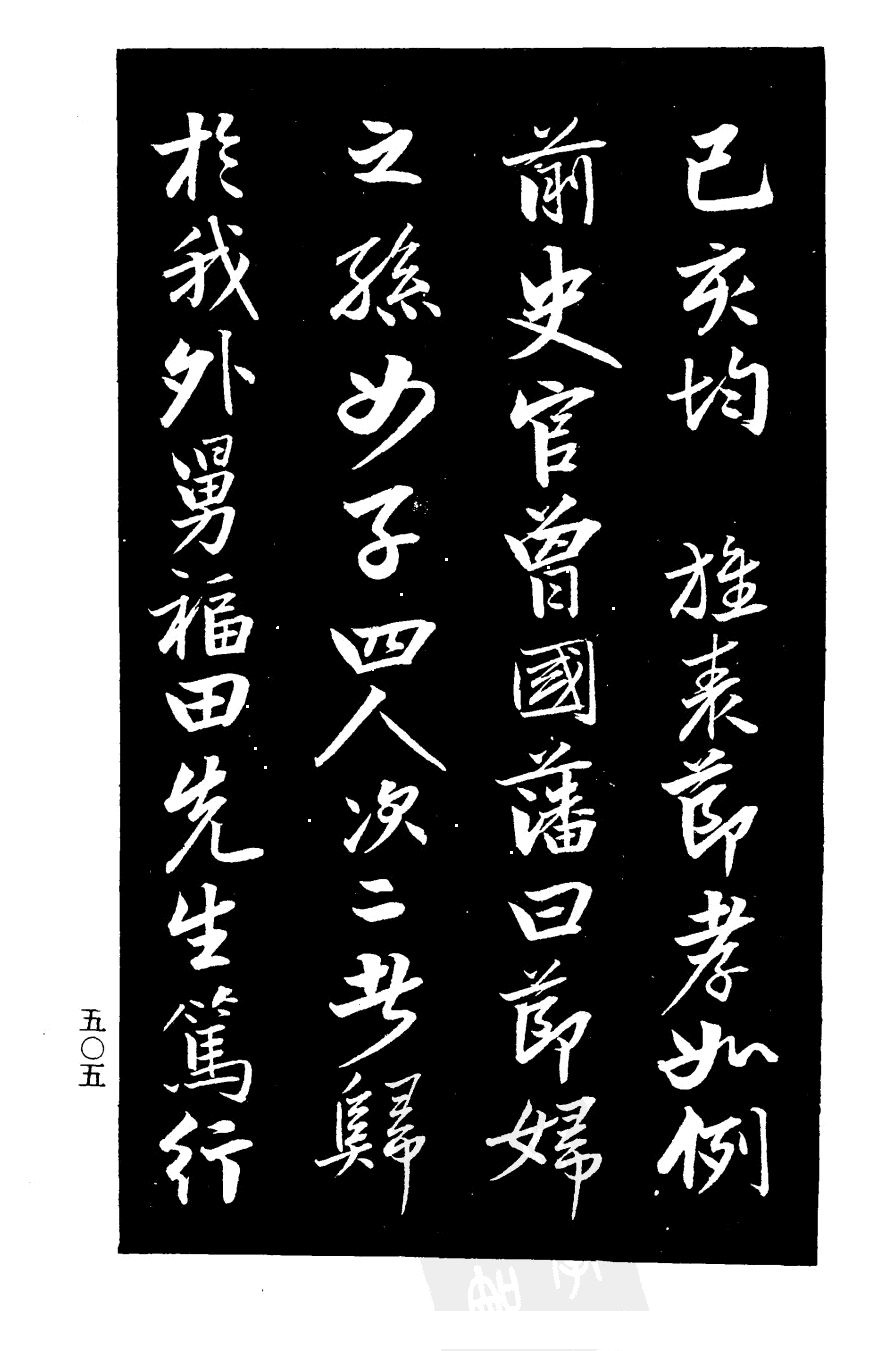 己亥均 旌表節孝如例
前史官曾國藩曰節婦
之孫女子四人次二者歸
於我外舅福田先生篤行
五〇五